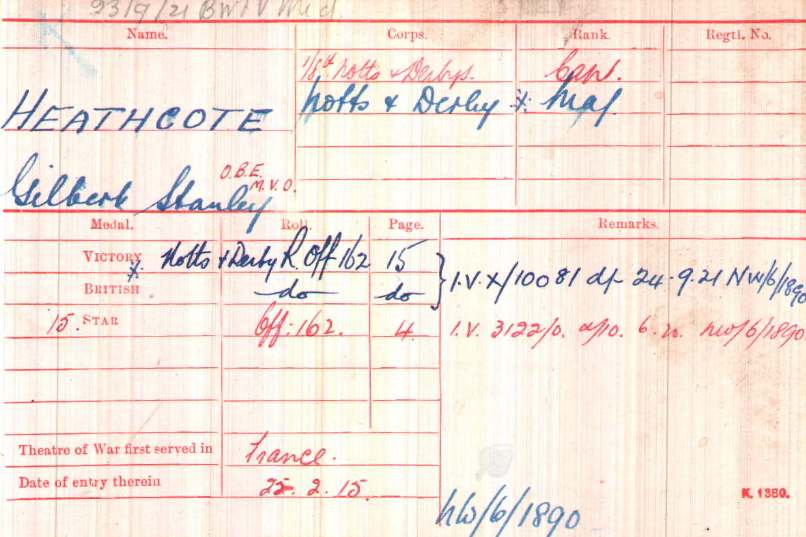 23/9/21 BW & V Med.
Name. Corps. Rank. Regtl. No.
1/8th Notts & Derbys. Capt.
HEATHCOTE Notts & Derby * Maj
Gilbert Stanley O.B.E. M.V.O.
Medal. Roll. Page. Remarks.
VICTORY * Notts & Derby R. Off 162 15
BRITISH do do } I.V.X/10081 df 24.9.21 NW/6/1890
15. STAR Off: 162. 4. I.V. 3122/0. NW/6/1890
Theatre of War first served in France.
Date of entry therein 25. 2. 15.
K. 1380.
NW/6/1890